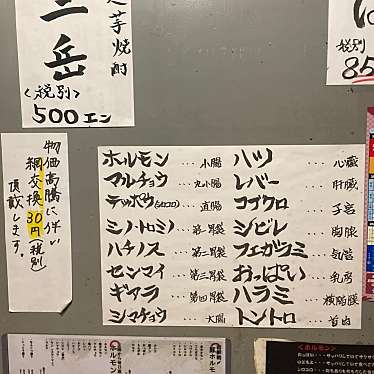 芋焼酎
三岳
〈税別〉
500エン
税別
85
物価高騰に伴い
網交換30円(税別)
頂戴します。
ホルモン…小腸
マルチョウ…丸小腸
テッポウ(シロコロ)…直腸
ミノ・トロミノ…第一胃袋
ハチノス…第二胃袋
センマイ…第三胃袋
ギアラ…第四胃袋
シマチョウ…大腸
ハツ…心臓
レバー…肝臓
コブクロ…子宮
シビレ…胸腺
フエガラミ…気管
おっぱい…乳房
ハラミ…横隔膜
トントロ…首肉